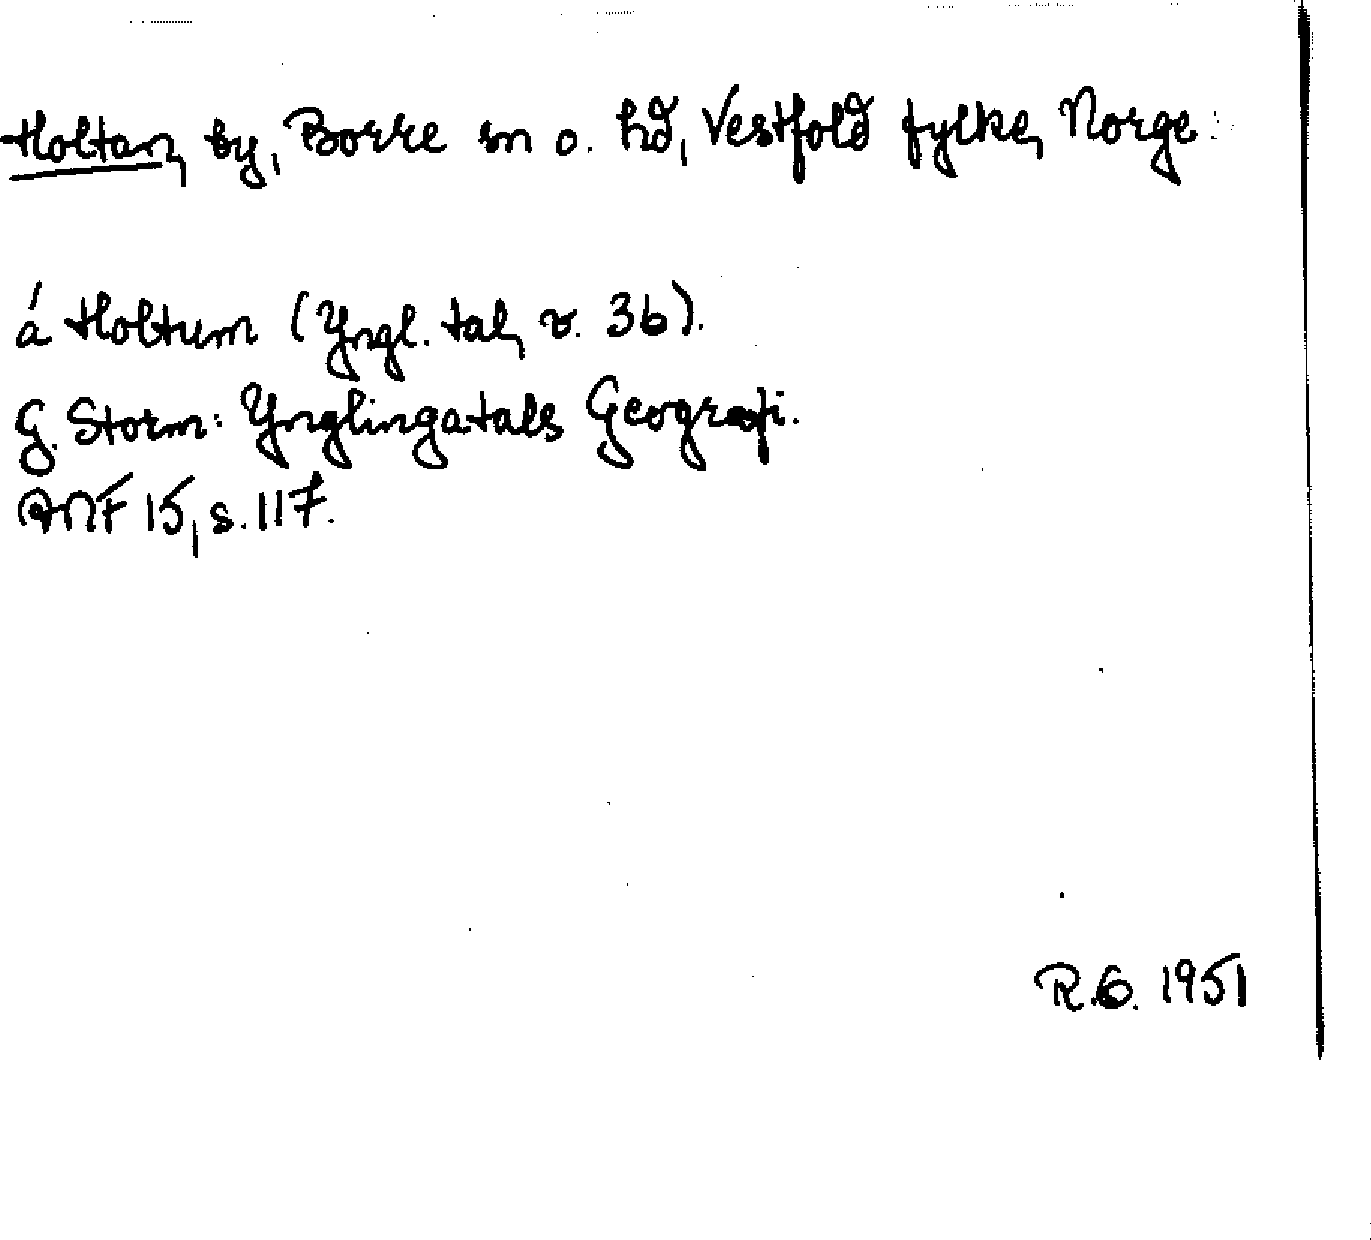 Holtan, by, Borre sn o. hd, Vestfold fylke, Norge.
á Holtum (Yngl. tal, v. 36).
G. Storm: Ynglingatals Geografi.
ANF 15, s. 117.
R.G. 1951